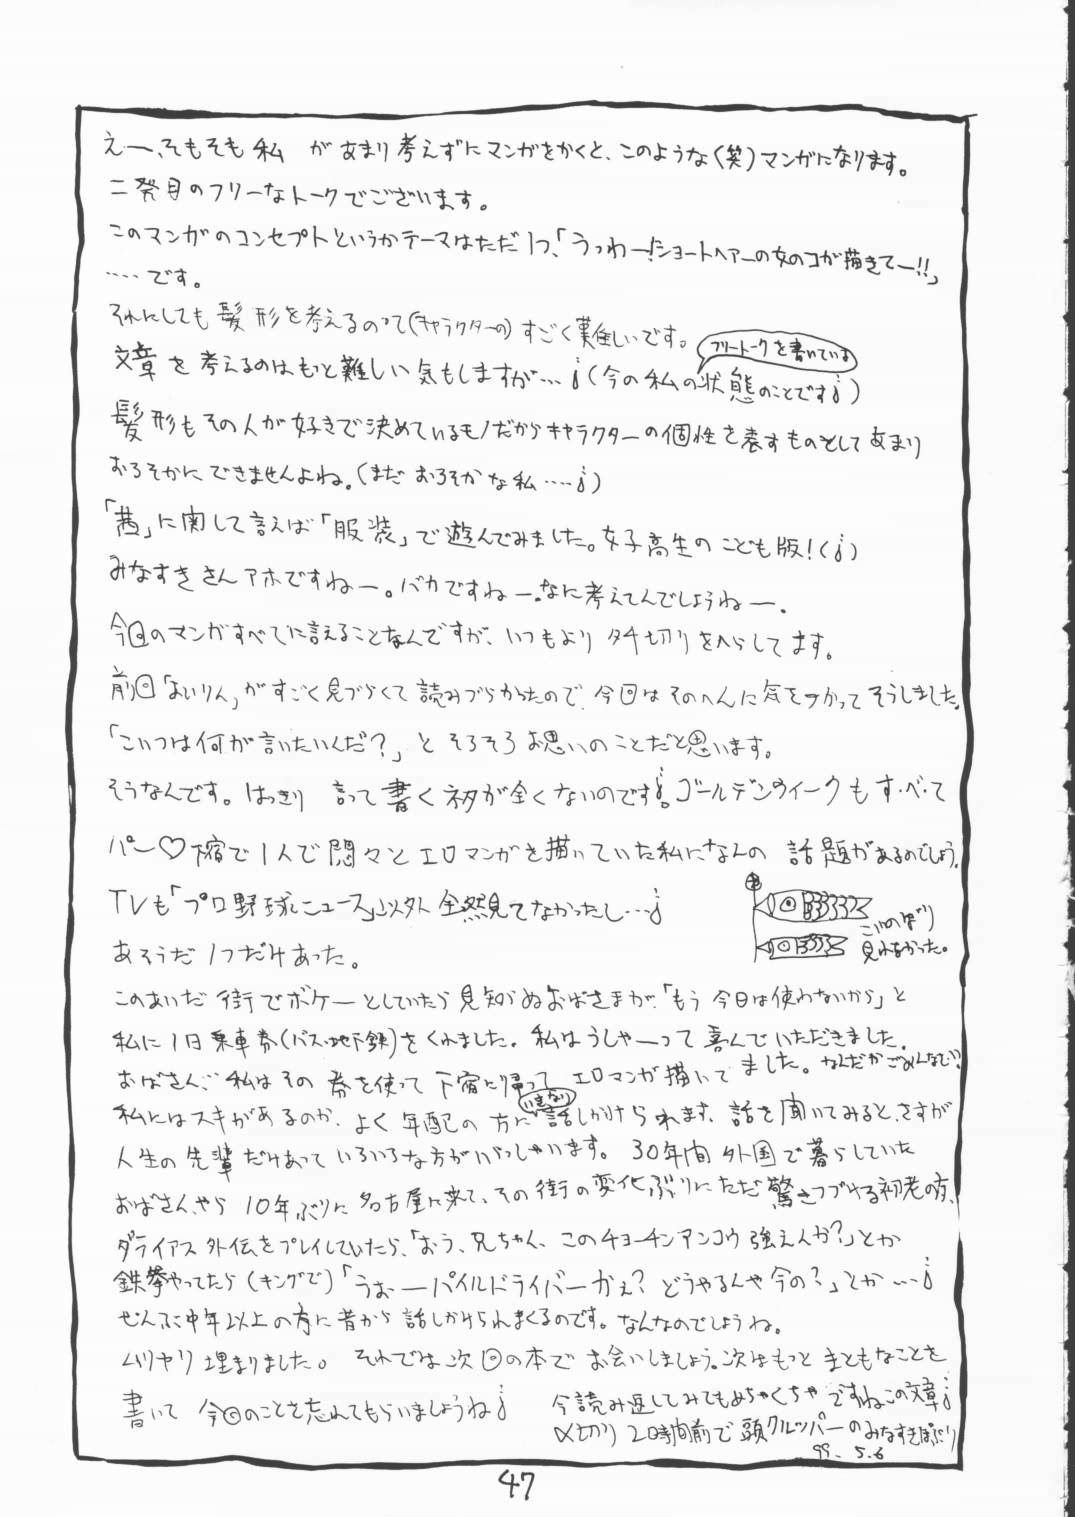 えー、そもそも私 があまり考えずにマンガをかくと、このような(笑)マンガになります。
二発目のフリーなトークでございます。
このマンガのコンセプトというかテーマはただ1つ、「うっわー!ショートヘアーの女のコが描きてー!!」
‥‥です。
それにしても髪形を考えるのって(キャラクターの)すごく難しいです。
フリートークを書いている
文章を考えるのはもっと難しい気もしますが…(今の私の状態のことです)
髪形もその人が好きで決めているモノだからキャラクターの個性を表すものとしてあまり
おろそかにできませんよね。(まだおろそかな私‥‥)
「茜」に関して言えば「服装」で遊んでみました。女子高生のこども版!()
みなすきさんアホですねー。バカですねー。なに考えてんでしょうねー。
今回のマンガすべてに言えることなんですが、いつもよりタチ切りをへらしてます。
前回「よいりん」がすごく見づらくて読みづらかったので、今回はそのへんに気をつかってそうしました。
「こいつは何が言いたいんだ?」とそろそろお思いのことだと思います。
そうなんです。はっきり 言って書くネタが全くないのです。ゴールデンウィークもす・べ・て
パー♡下宿で1人で悶々とエロマンガを描いていた私になんの 話題があるのでしょう。
TVも「プロ野球ニュース」以外全然見てなかったし…
こいのぼり
見れなかった。
あそうだ1つだけあった。
このあいだ街でボケーとしていたら見知らぬおばさまが、「もう今日は使わないから」と
私に1日乗車券(バス・地下鉄)をくれました。私はうしゃーって喜んでいただきました。
おばさん、私はその券を使って下宿に帰ってエロマンガ描いてました。なんだかごめんなさい
いきなり
私にはスキがあるのか、よく年配の方に話しかけられます、話を聞いてみると、さすが
人生の先輩だけあっていろいろな方がいらっしゃいます。30年間外国で暮らしていた
おばさんやら10年ぶりに名古屋に来て、その街の変化ぶりにただ驚きつづける初老の方、
ダライアス外伝をプレイしていたら、「おう、兄ちゃん、このチョーチンアンコウ強えんか?」とか
鉄拳やってたら(キングで)「うぉーパイルドライバーかぇ?どうやるんや今の?」とか…
ぜんぶ中年以上の方に昔から話しかけられまくるのです。なんなのでしょうね。
ムリヤリ埋まりました。 それでは次回の本でお会いしましょう。次はもっとまともなことを
書いて 今回のことを忘れてもらいましょうね
今読み返してみてもめちゃくちゃですねこの文章
〆切り2時間前で頭クルッパーのみなすきぽぷり
99. 5.6
47